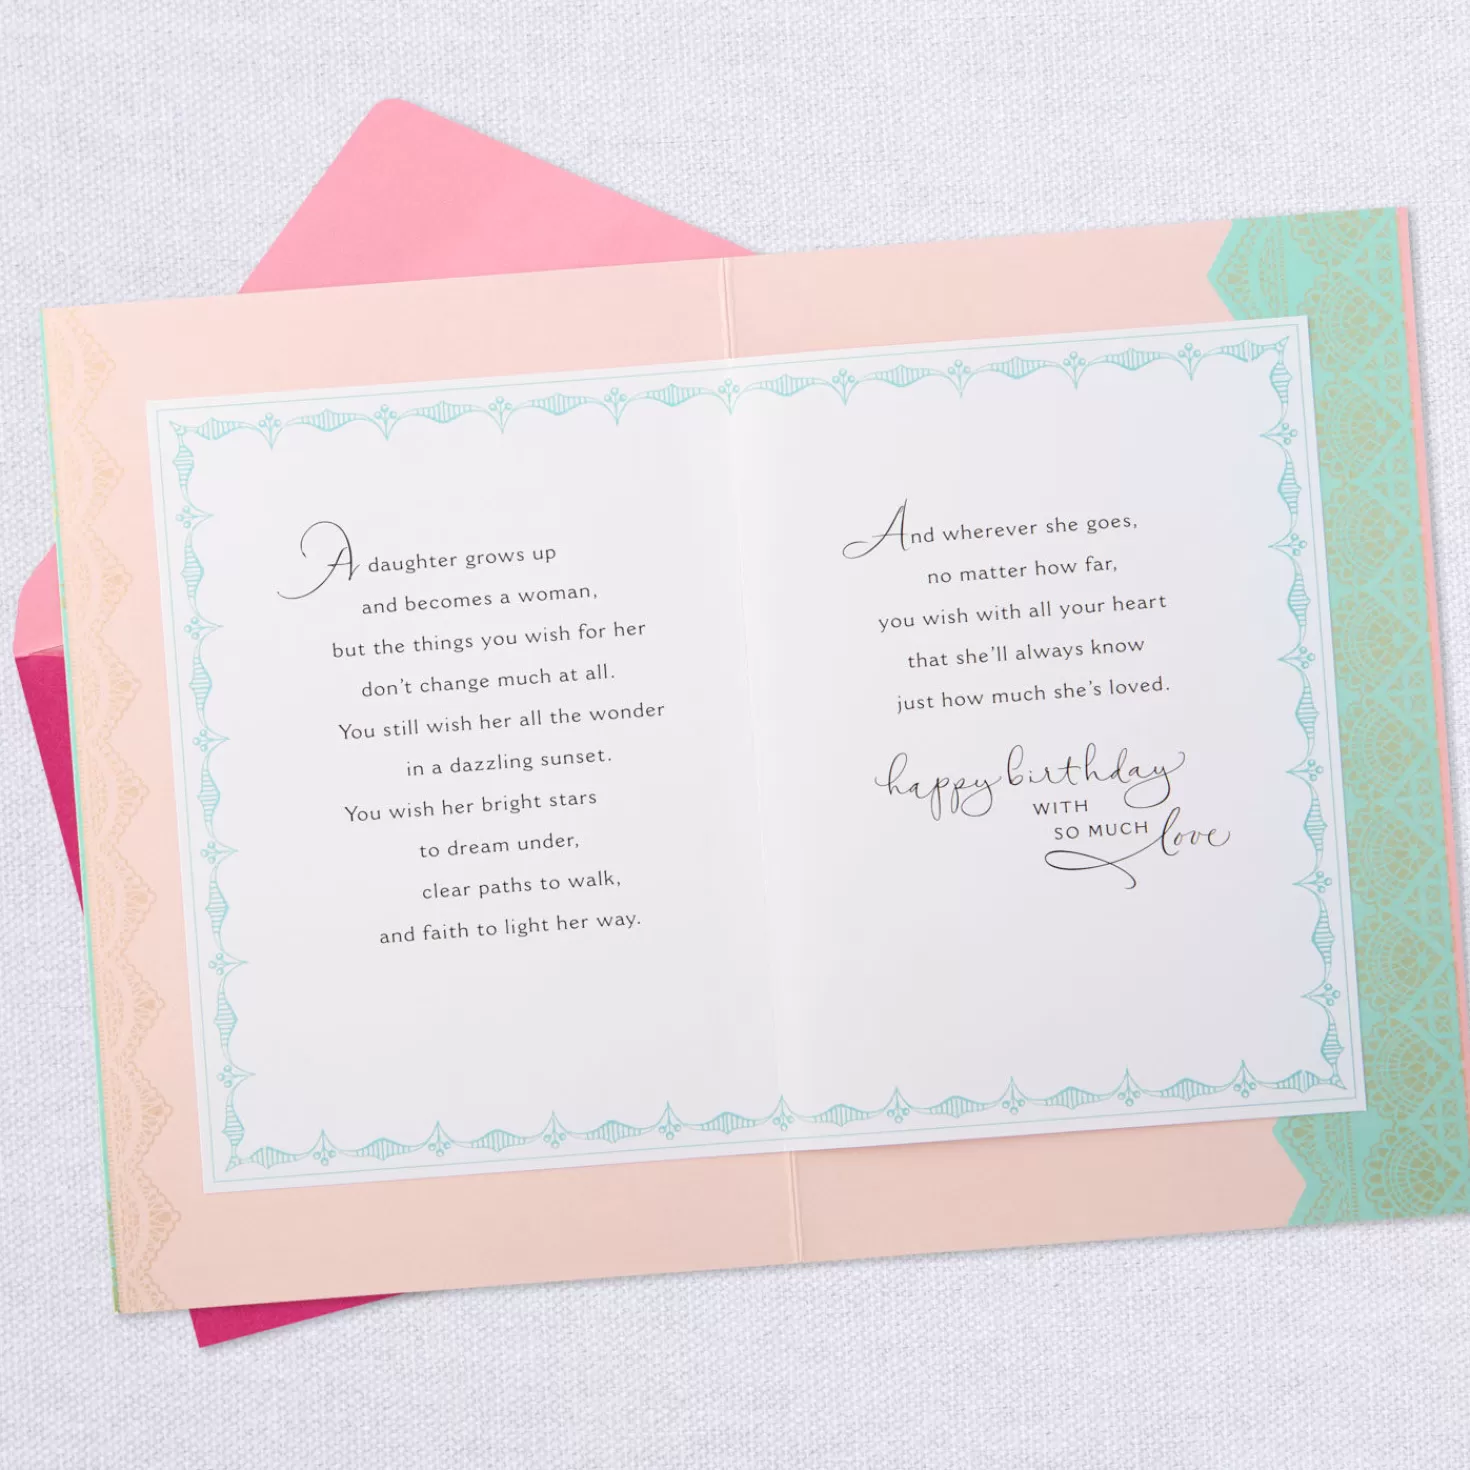 A daughter grows up
and becomes a woman,
but the things you wish for her
don't change much at all.
You still wish her all the wonder
in a dazzling sunset.
You wish her bright stars
to dream under,
clear paths to walk,
and faith to light her way.
And wherever she goes,
no matter how far,
you wish with all your heart
that she'll always know
just how much she's loved.
happy birthday
WITH
SO MUCH love